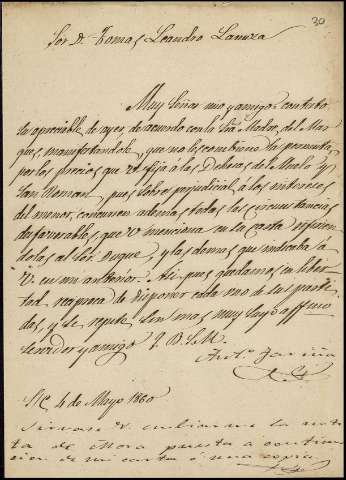 30
Sor D. Tomas Leandro Lanuza
Muy Señor mio y amigo: contesto
su apreciable de ayer, de acuerdo con la Sra. Madre, del Mar
que, manifestandole, que no le combiene la permuta
por los precios que V. fija á las Dehesas del Malo y
San Roman, pues sobre perjudicial á los intereses
del menor, concurren ademas todas las circunstancias
desfavorables, que V. menciona en su carta
al Sor. Duque, y las demas que indicaba á
V. en mi anterior. Asi pues quedamos en liber
tad reciproca de disponer cada uno de sus parti
das, y se repite sin mas muy suyo affmo
servidor y amigo Q. B. S. M.
Anto. Fariña
S/C. 4 de Mayo 1860
Sirvase V. embiarme la no
ta de Mora puesta a continua
cion de mi carta ó una copia